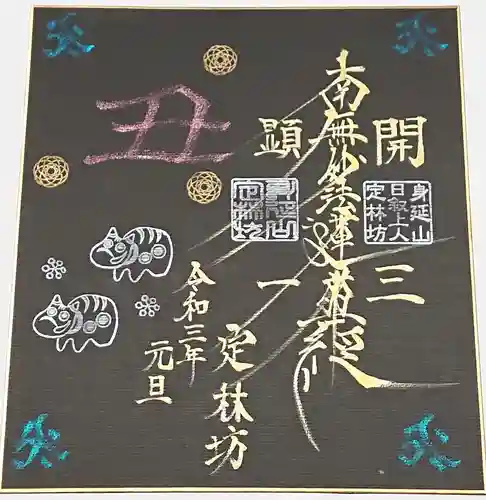 開三
南無妙法蓮華経
顕一
身延山
日叙上人
定林坊
丑
令和三年
元旦
定林坊